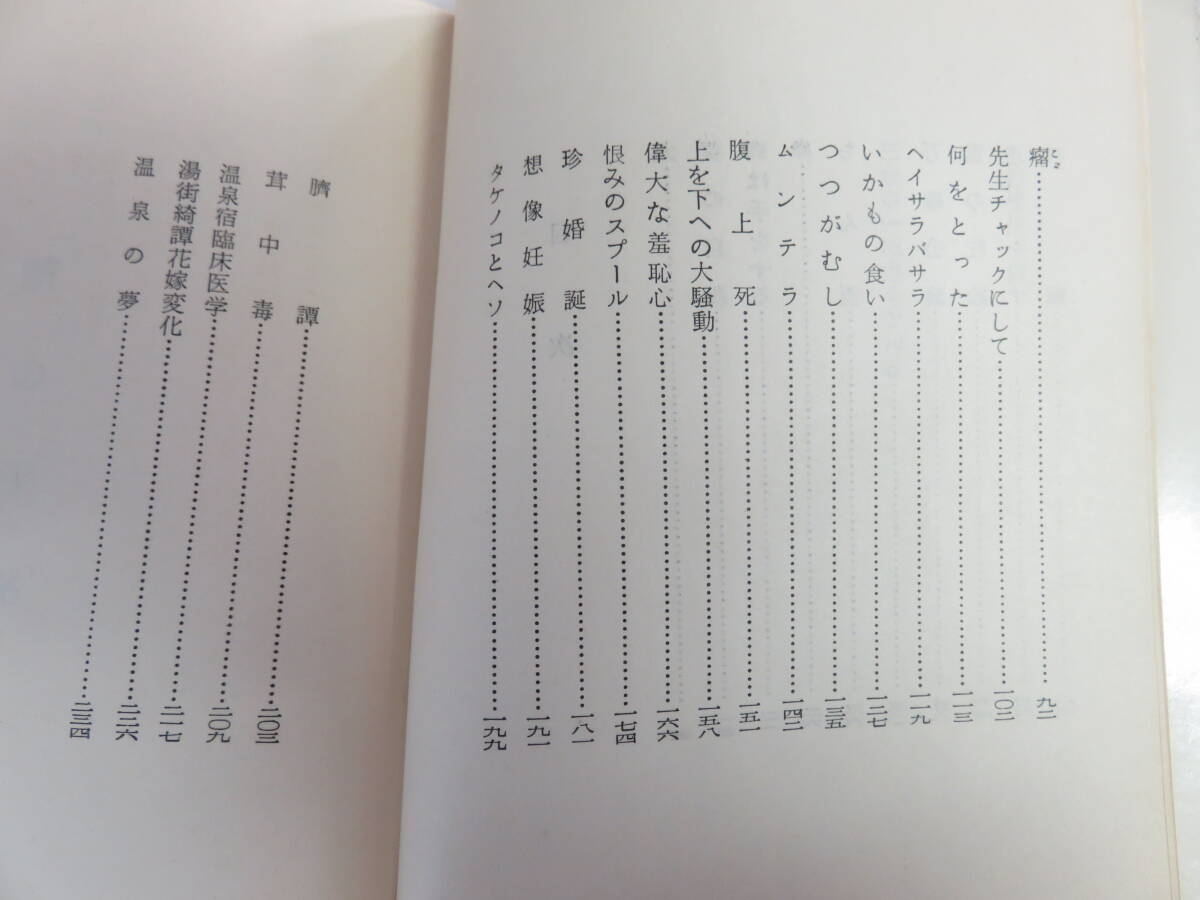 瘤こぶ……九二
先生チャックにして……一〇二
何をとった……一一三
ヘイサラバサラ……一一九
いかもの食い……一二七
つつがむし……一三五
ムンテラ……一四二
腹上死……一五一
上を下への大騒動……一五八
偉大な羞恥心……一六六
恨みのスプール……一七四
珍婚誕……一八一
想像妊娠……一九一
タケノコとヘソ……一九九
臍譚……二〇三
茸中毒……二〇九
温泉宿臨床医学……二一七
湯街綺譚花嫁変化……二二六
温泉の夢……二三四